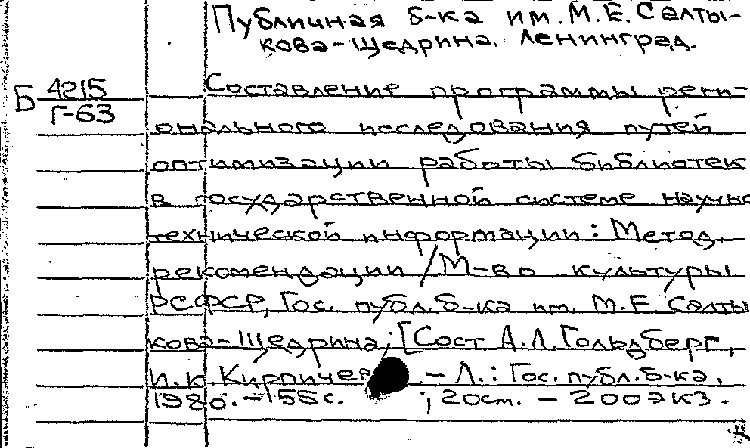 Публичная б-ка им. М.Е. Салты-
кова-Щедрина. Ленинград.
Б 4215
Г-63
Составление программы реги-
онального исследования путей
оптимизации работы библиотек
в государственной системе научно
технической информации: Метод.
рекомендации / М-во культуры
РСФСР, Гос. публ. б-ка им. М.Е Салты
кова-Щедрина; [Сост А.Л. Гольдберг,
И.К. Кирпичев . – Л.: Гос. публ. б-ка,
1980. – 55 с. ; 20 см. – 200 экз.